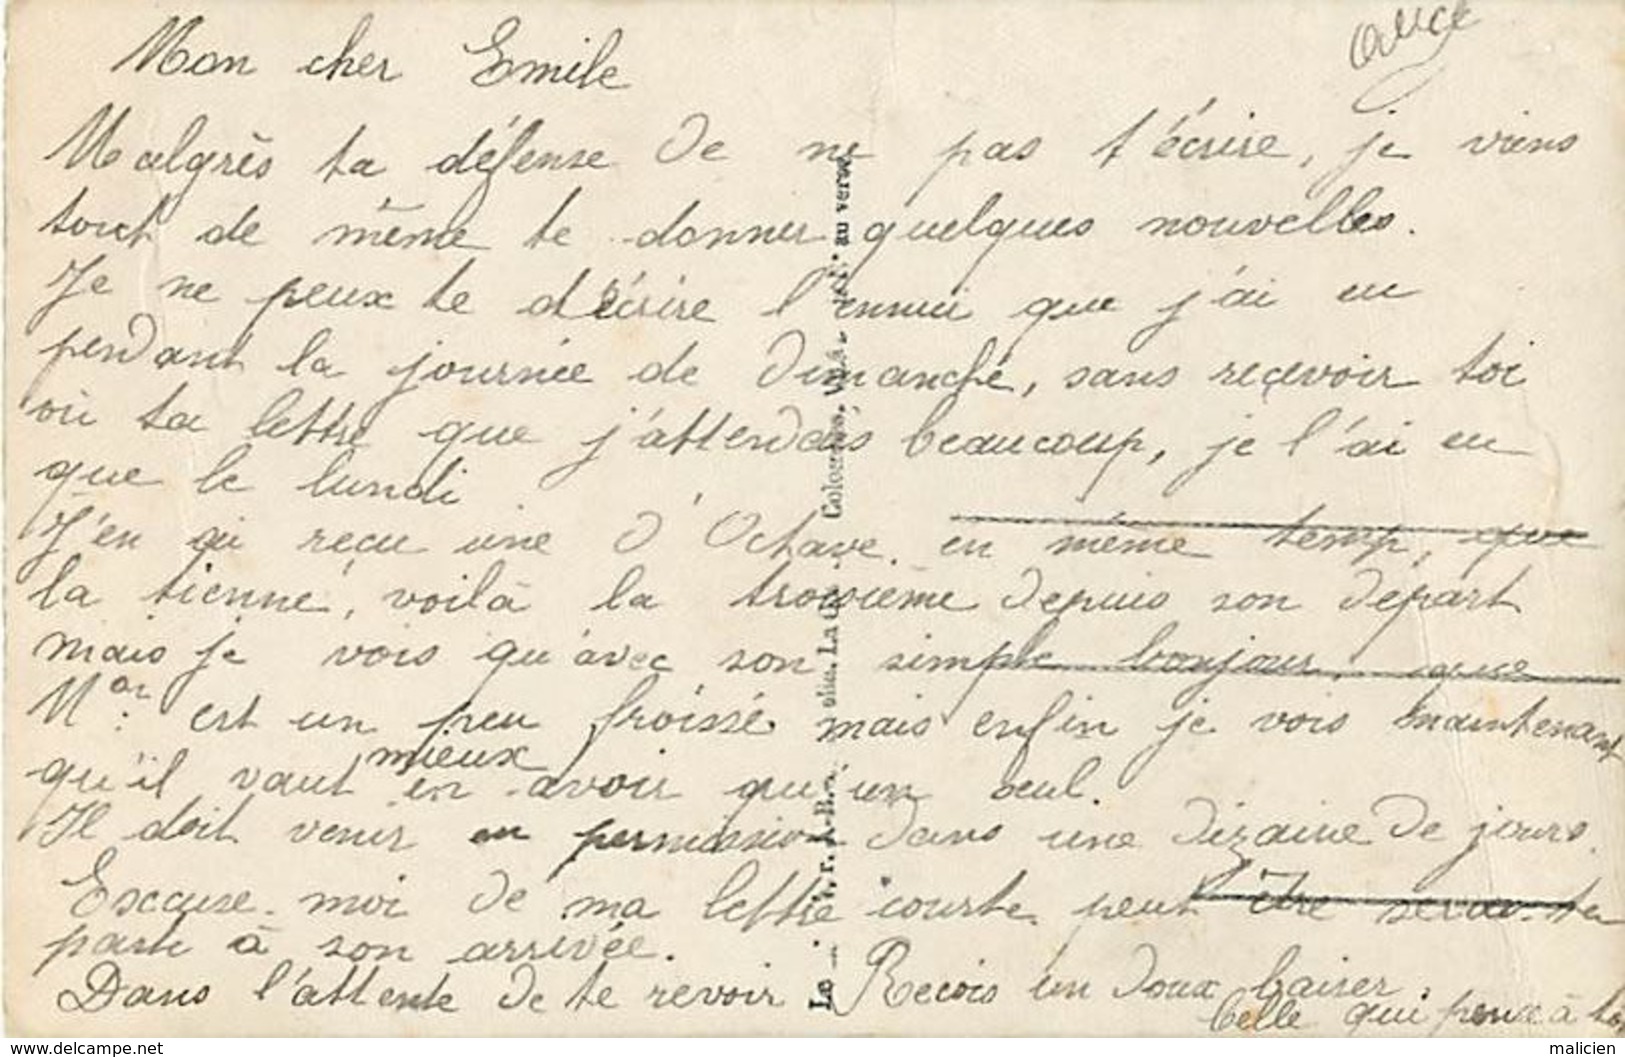 Mon cher Emile
Malgrès ta défense de ne pas t'écrire, je viens
tout de même te donner quelques nouvelles.
Je ne peux te décrire l'ennui que j'ai eu
pendant la journée de Dimanche, sans recevoir toi
où ta lettre que j'attendais beaucoup, je l'ai eu
que le lundi
J'en ai reçu une d'Octave en même temp, que
la tienne, voilà la troisième depuis son départ
mais je vois qu'avec son simple bonjour, que
Mor. est un peu froissé mais enfin je vois maintenant
qu'il vaut mieux en avoir qu'un seul.
Il doit venir en permission dans une dizaine de jours.
Excuse-moi de ma lettre courte peut être seras-tu
parti à son arrivée.
Dans l'attente de te revoir Reçois un doux baiser.
Celle qui pense à toi
Alice
au verso
La C
malicien
www.delcampe.net